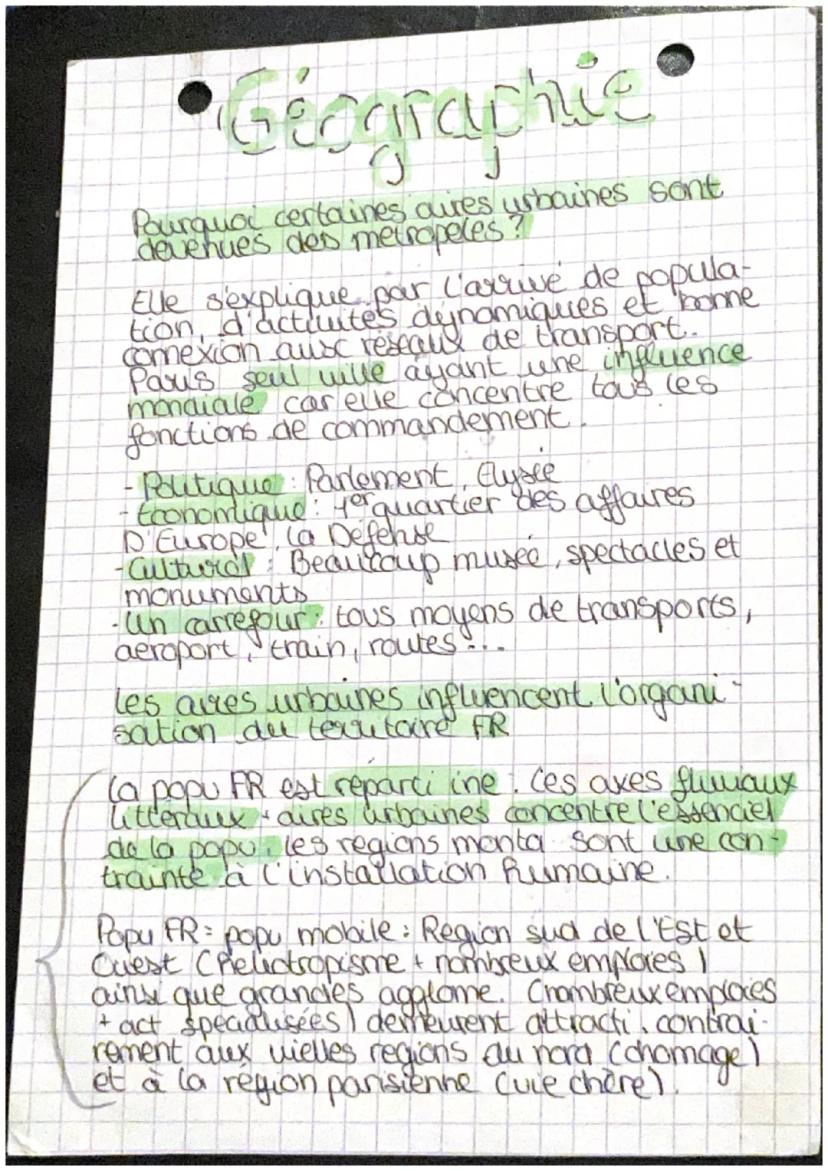 Géographie
Pourquoi certaines aires urbaines sont
devenues des metropeles ?
Elle s'explique par l'arrivé de popula-
tion, d'activités dynamiques et bonne
connexion aux réseaux de transport.
Paris seul ville ayant une influence
mondiale car elle concentre tous les
fonctions de commandement.
- Politique : Parlement, Elysée
- Economique : 1er quartier des affaires
D'Europe, La Défense
- Culturel : Beaucoup musée, spectacles et
monuments
- Un carrefour : tous moyens de transports,
aeroport, train, routes...
Les aires urbaines influencent l'organi-
sation du territoire FR
La popu FR est réparti ine : Les axes fluviaux
littéraux + aires urbaines concentre l'essenciel
de la popu, les regions monta sont une con-
trainte à l'installation humaine.
Popu FR = popu mobile : Region sud de l'Est et
Ouest (héliotropisme + nombreux emploies)
ainsi que grandes agglome. (nombreux emploies
+ act specialisées) demeurent attracti. contrai-
rement aux vielles regions du nord (chomage)
et à la région parisienne (vie chère).